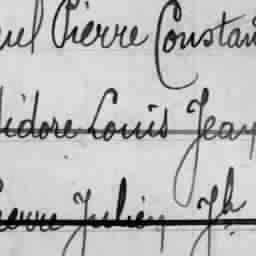 uel Pierre Constan
sidore Louis Jean
ierre Julien Jh